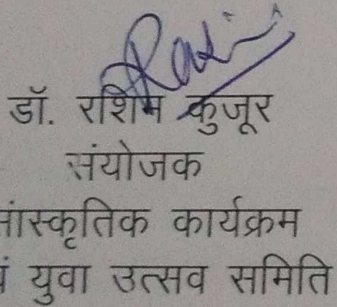 डॉ. रशिम कुजूर
संयोजक
सांस्कृतिक कार्यक्रम
एवं युवा उत्सव समिति